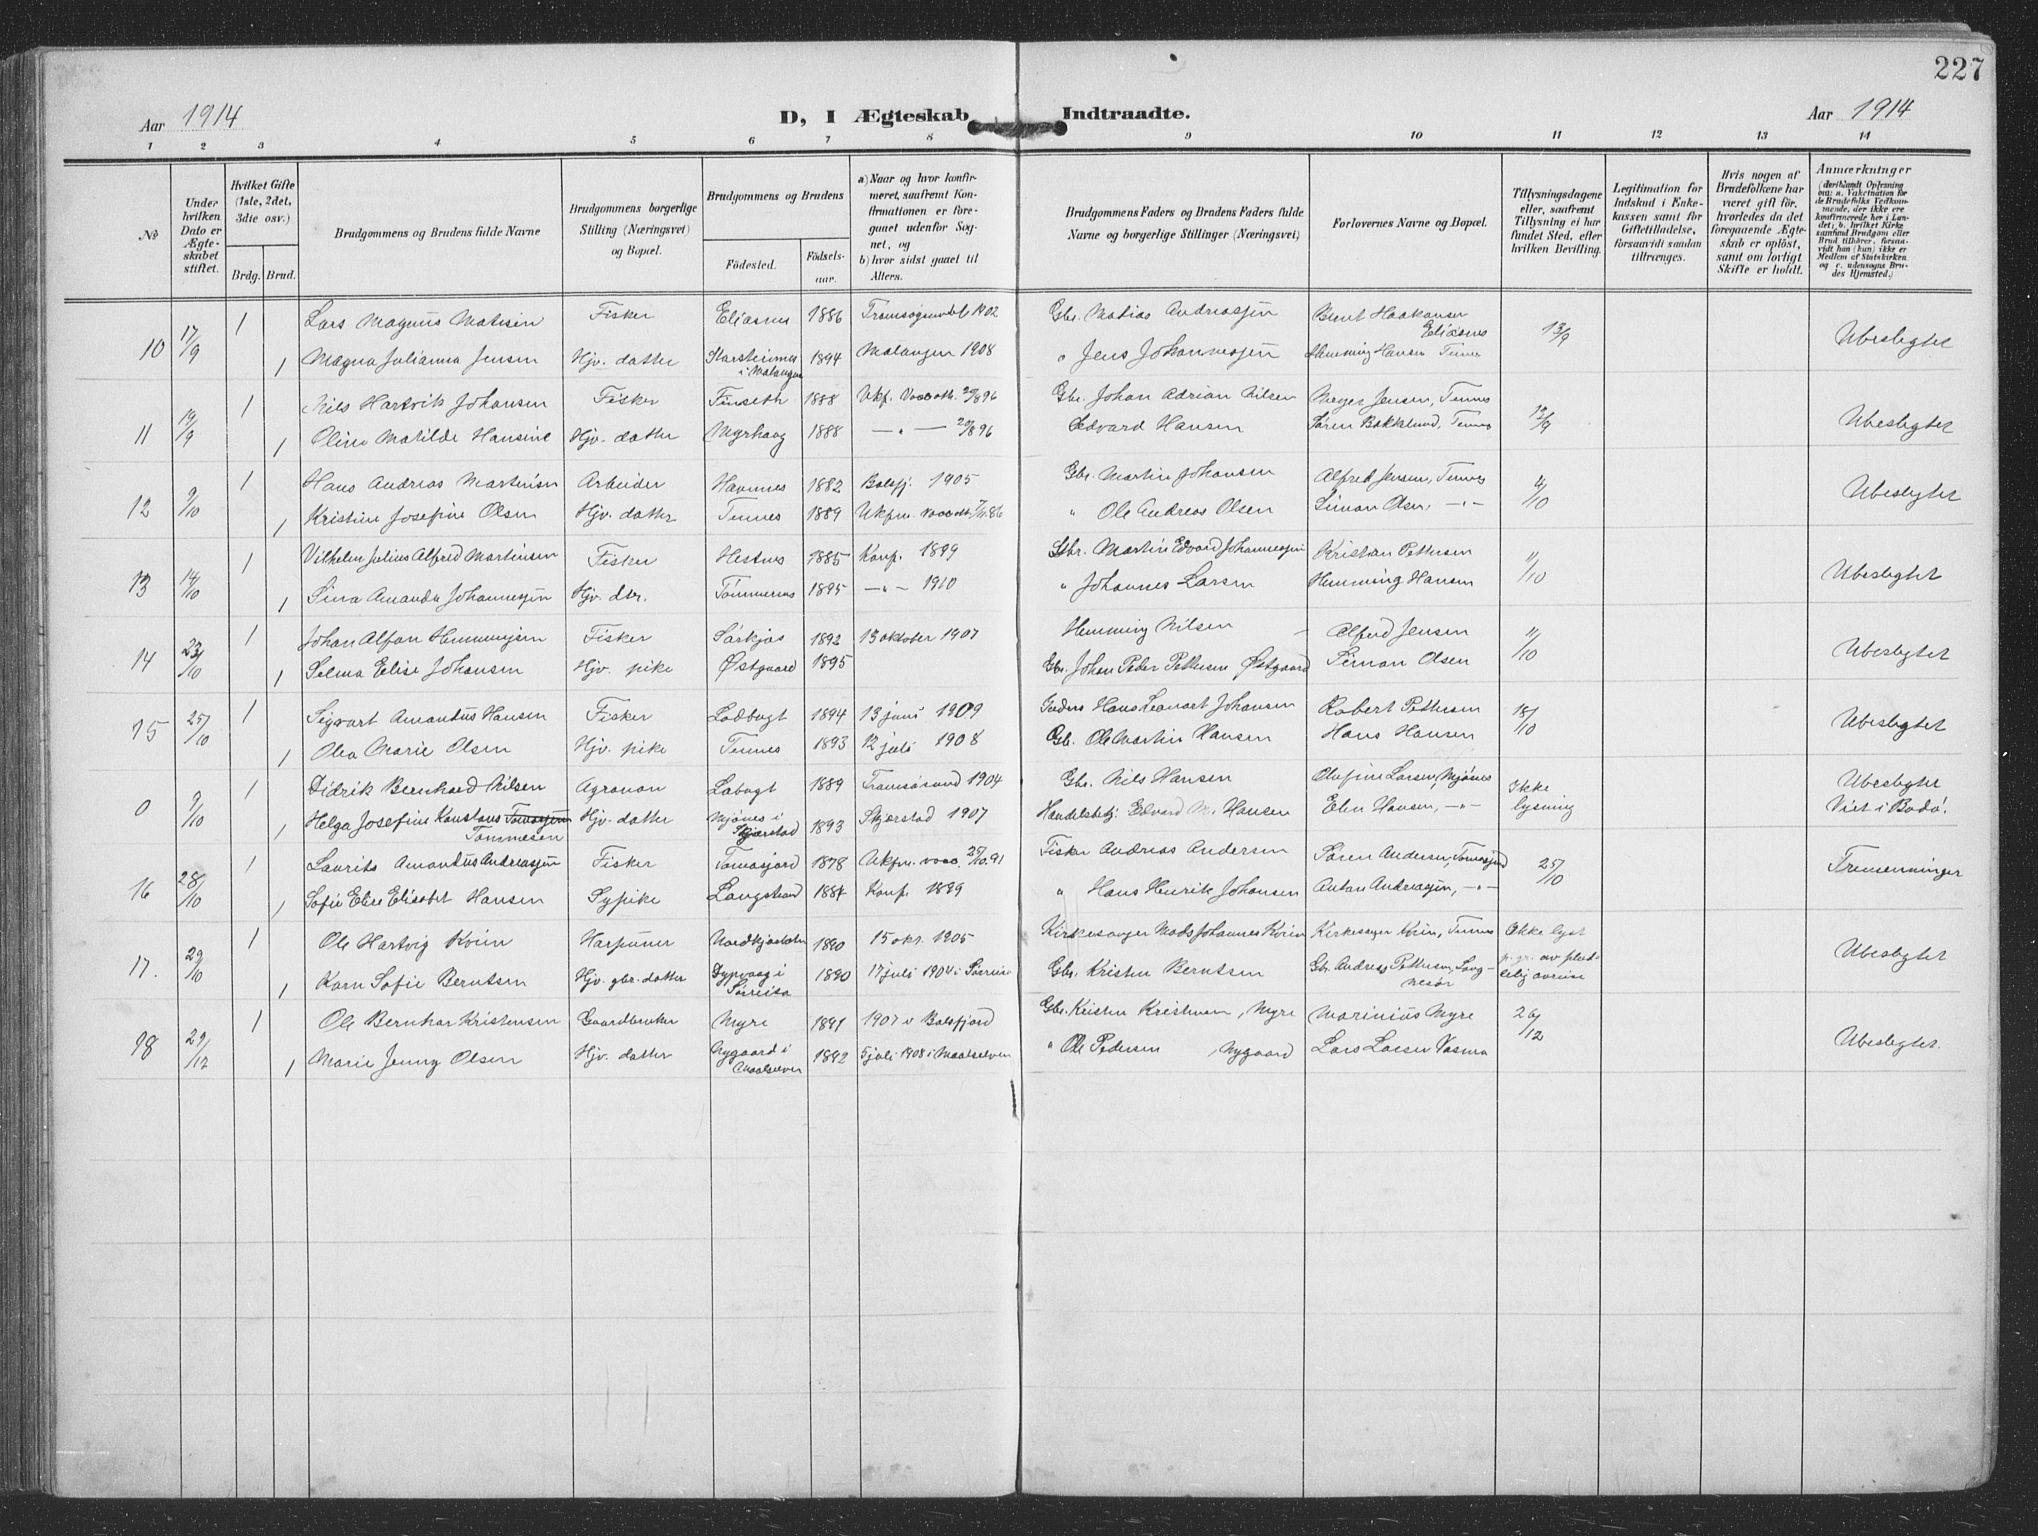 227
Aar 1914
D, I Ægteskab Indtraadte.
Aar 1914
1 2 3 4 5 6 7 8 9 10 11 12 13 14
№
Under hvilken Dato er Ægteskabet stiftet.
Hvilket Gifte (1ste, 2det, 3die osv.)
Brdg. Brud.
Brudgommens og Brudens fulde Navne
Brudgommens borgerlige Stilling (Næringsvei) og Bopæl.
Brudgommens og Brudens
Födested.
Födselsaar.
a) Naar og hvor konfirmeret, saafremt Konfirmationen er foregaaet udenfor Sognet, og
b) hvor sidst gaaet til Alters.
Brudgommens Faders og Brudens Faders fulde Navne og borgerlige Stillinger (Næringsvei)
Forlovernes Navne og Bopæl.
Tillysningsdagene eller, saafremt Tillysning ei har fundet Sted, efter hvilken Bevilling.
Legitimation for Indskud i Enkekassen samt for Giftetilladelse, forsaavidt saadan tiltrænges.
Hvis nogen af Brudefolkene har været gift för, hvorledes da det foregaaende Ægteskab er oplöst, samt om lovligt Skifte er holdt.
Anmærkninger
(deriblandt Oplysning om: a. Vakcination for de Brudefolks Vedkommende, der ikke ere konfirmerede her i Landet; b. hvilket Kirkesamfund Brudgom eller Brud tilhörer, forsaavidt han (hun) ikke er Medlem af Statskirken og c. udensogns Brudes Hjemsted.)
10 17/9 1 Lars Magnus Matisen Fisker Eliasnes 1886 1902 Gbr. Matias Andreassen Bernt Haakonsen Eliasnes 13/9 Ubeslegtet
1 Magna Julianna Jensen Hjv. datter i Malangen 1894 Malangen 1908 " Jens Johannessen Hemming Hansen Tennes
11 19/9 1 Nils Hartvik Johansen Fisker Finseth 1888 Ukf. 20/8 96 Gbr. Johan Adrian Nilsen Meyer Jensen, Tennes 12/9 Ubeslegtet
1 Oline Matilde Hansine Hjv. datter Myrhaug 1888 — " — 20/8 96 Edvard Hansen Søren Bakkelund, Tennes
12 9/10 1 Hans Andreas Martinsen Arbeider Havnnes 1882 Balsfj. 1905 Gbr. Martin Johansen Alfred Jensen, Tennes 4/10 Ubeslegtet
1 Kristine Josefine Olsen Hjv. datter Tennes 1889 Ukfm. " Ole Andreas Olsen Simon Olsen, -"-
13 14/10 1 Vilhelm Julius Alfred Martinsen Fisker Hestnes 1885 Konf. 1899 Gbr. Martin Edvard Johannessen Kristian Pettersen 11/10 Ubeslegtet
1 Sina Amanda Johannessen Hjv. dtr. Tømmernes 1895 —"— 1910 " Johannes Larsen Hemming Hansen
14 23/10 1 Johan Alfon Hemmingsen Fisker Sørkjos 1892 13 oktober 1907 Hemming Nilsen Alfred Jensen 11/10 Ubeslegtet
1 Selma Elise Johansen Hjv. pike Østgaard 1895 Gbr. Johan Peder Pettersen Østgaard Simon Olsen
15 25/10 1 Sigvart Amandus Hansen Fisker Ladbugt 1894 13 juni 1909 Hans Leonart Johansen Robert Pettersen 18/10 Ubeslegtet
1 Olea Marie Olsen Hjv. pike Tennes 1893 12 juli 1908 Gb. Ole Martin Hansen Hans Hansen
0 9/10 1 Didrik Bernhard Nilsen Agronom Labugt 1889 Tromsøsund 1904 Gbr. Nils Hansen Olufine Larsen, Mjønes Ikke lysning Ubeslegtet Viet i Bodø.
1 Helga Josefine Konstans Tommesen Hjv. datter Mjønes i Skjerstad 1893 Skjerstad 1907 Handelsbetj. Edvard M. Hansen Elen Hansen, -"-
16 28/10 1 Laurits Amandus Andreassen Fisker Tomasjord 1878 Ukfm. 25/10 91 Fisker Andreas Andersen Søren Andersen, Tomasjord 25/10 Tremenninger
1 Sofie Eline Elisabet Hansen Sypike Langstrand 1884 Konf. 1899 " Hans Henrik Johansen Anton Andreassen, -"-
17. 29/10 1 Ole Hartvig Kvien Harpuner Nordkjosbotn 1890 15 okt. 1905 Kirkesanger Mads Johannes Kvien Kirkesanger Kvien, Tennes Ikke lyst p. gr. av pludselig avreise Ubeslegtet
1 Karn Sofie Berntsen Hjv. gbr. datter Dypvaag i Sørreisa 1890 17 juli 1904 i Sørreisa Gbr. Kristen Berntsen Gbr. Andreas Pettersen, Langnesør
18 29/12 1 Ole Bernhar Kristensen Gaardbruker Myre 1891 1907 i Balsfjord Gbr. Kristen Kristensen, Myre Marinius Myre 26/12 Ubeslegtet
1 Marie Jenny Olsen Hjv. datter Nygaard i Maalselven 1892 5 juli 1908 i Maalselven " Ole Pedersen, Nygaard Lars Larsen